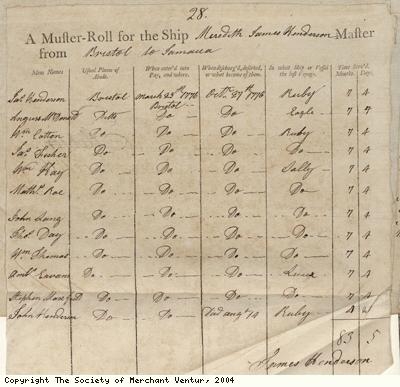 28.
A Muster-Roll for the Ship Meredith James Henderson Master
from Bristol to Jamaica
Mens Names Usual Places of Abode. When enter'd into Pay, and where. When discharg'd, deserted, or what became of them. In what Ship or Vessel the last Voyage. Time Serv'd. Months. Days.
Jas Henderson Bristol March 23th 1776 Bristol Octr. 27th 1776 Ruby 7 4
Angus McDonald Ditto Do Do Eagle 7 4
Wm Cotton Do Do Do Ruby 7 4
Jas. Fisher Do Do Do Do 7 4
Wm Hay Do Do Do Sally 7 4
Mathw. Roe Do Do Do Do 7 4
John Lang Do Do Do Do 7 4
Day Do Do Do Do 7 4
Wm Thomas Do Do Do Do 7 4
Evans Do Do Do 7 4
Stephen Do Do Do Do 7 4
John Henderson Do Do Augt 14 Ruby 4
83 5
James Henderson
Copyright The Society of Merchant Ventur, 2004